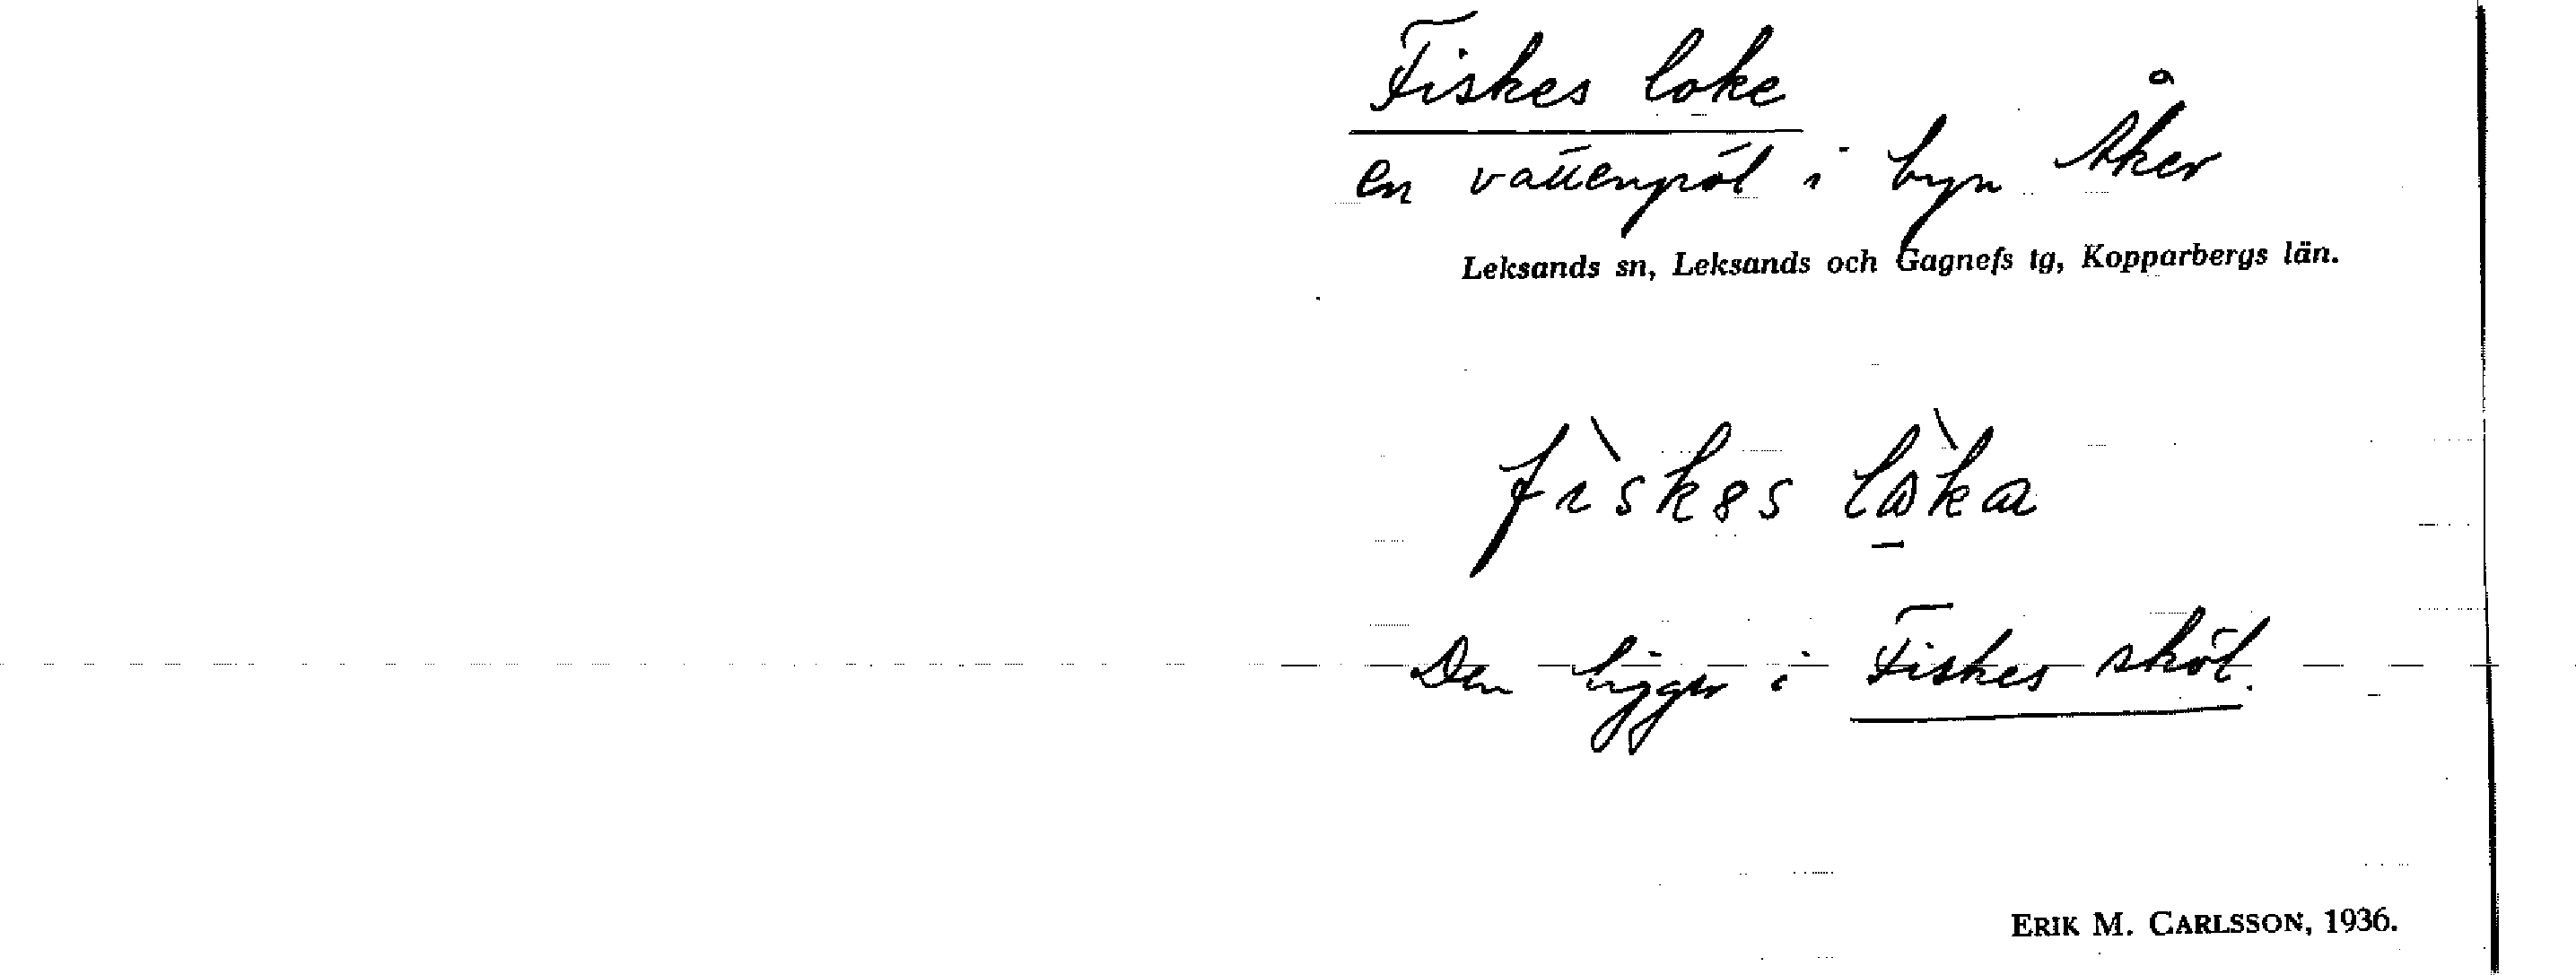 Fiskes loke
en vattenpöl i byn Åker
Leksands sn, Leksands och Gagnefs tg, Kopparbergs län.
Den ligger i Fiskes sköt.
ERIK M. CARLSSON, 1936.